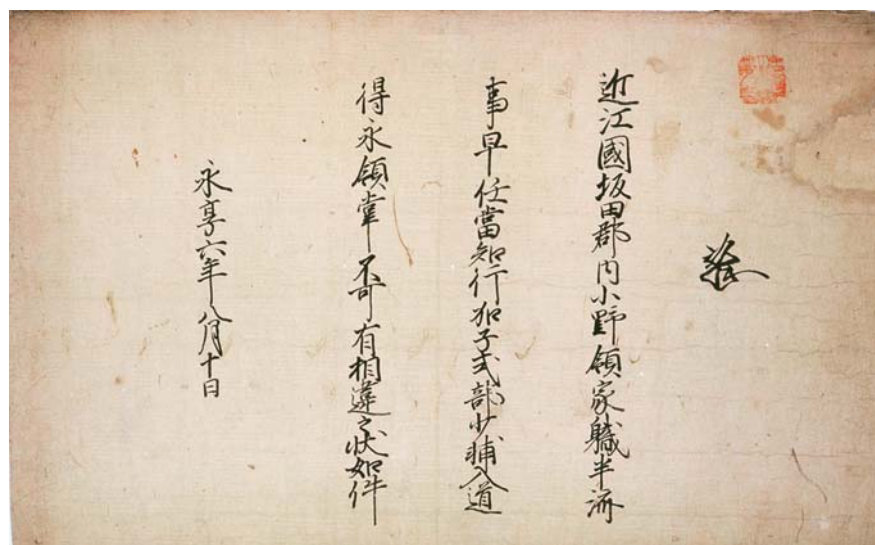 近江國坂田郡内小野領家職半済
事早任當知行加子式部少輔入道
得永領掌不可有相違之状如件
永享六年八月十日